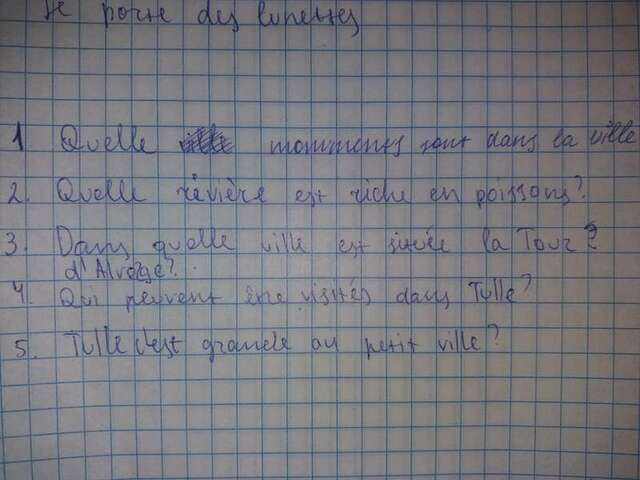 Je porte des lunettes
1 Quelle monuments sont dans la ville
2. Quelle révière est riche en poissons?
3. Dans quelle ville est située la Tour?
d'Alvarge?
4. Qui peuvent être visités dans Tulle?
5. Tulle c'est grande ou petit ville?